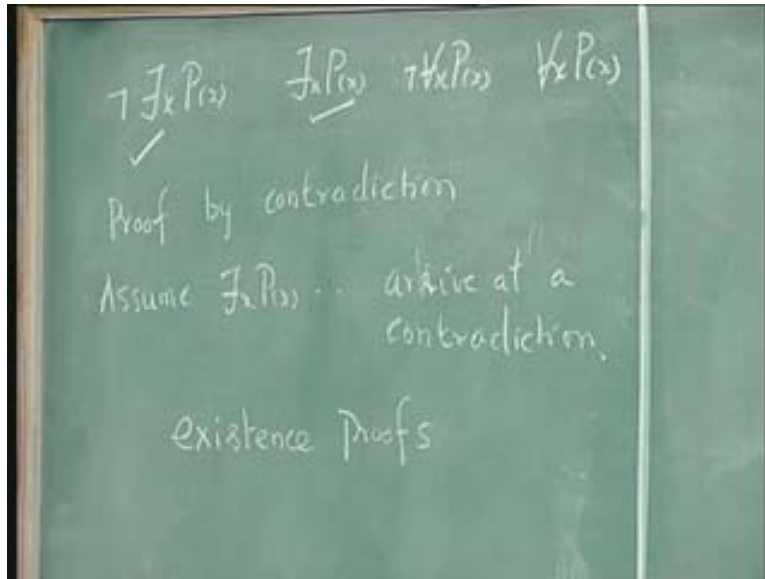 ¬∃xP(x) ∃xP(x) ¬∀xP(x) ∀xP(x)
Proof by contradiction
Assume ∃xP(x) .. arrive at a
contradiction.
existence Proofs